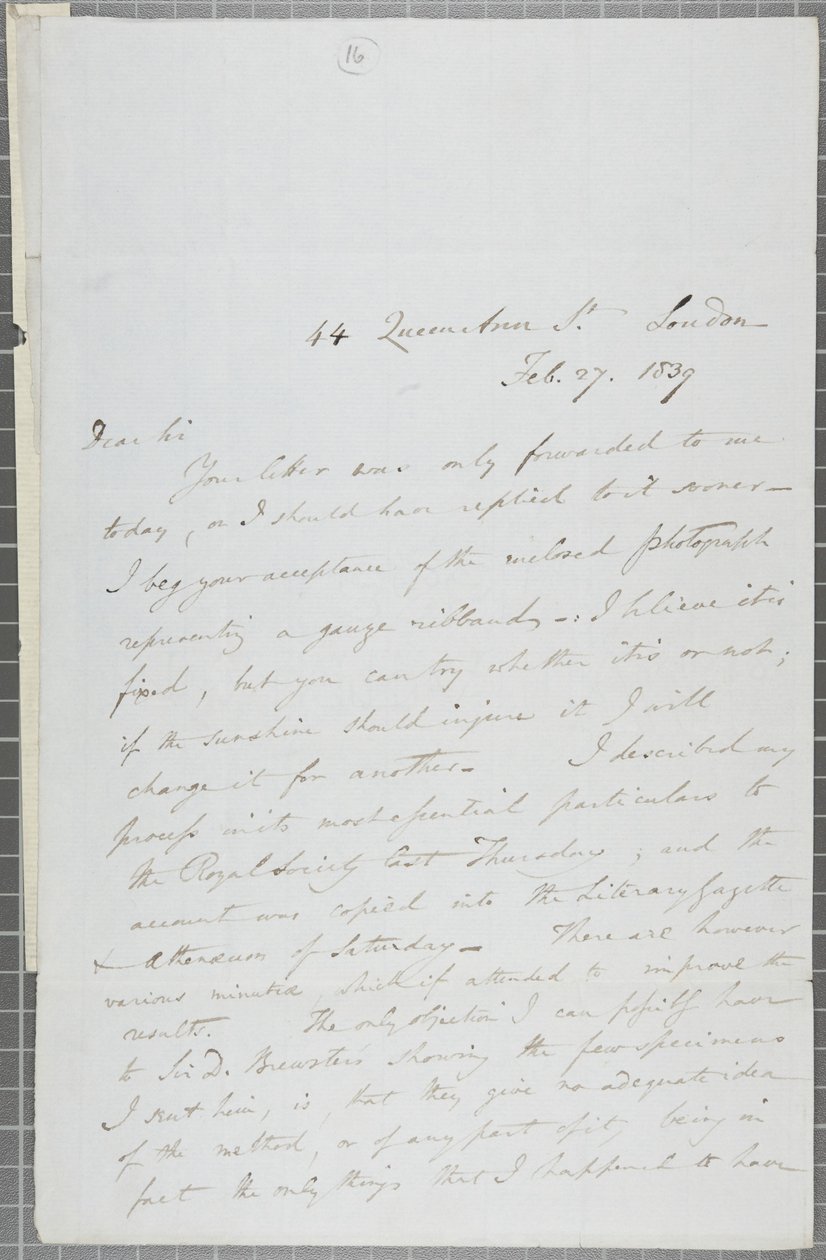 16
44 Queen Ann St. London
Feb. 27. 1839
Dear Sir
Your letter was only forwarded to me
today, or I should have replied to it sooner –
I beg your acceptance of the inclosed photograph
representing a gauze ribband –: I believe it is
fixed, but you can try whether it is or not;
if the sunshine should injure it I will
change it for another – I described my
process in its most essential particulars to
the Royal Society last Thursday; and the
account was copied into the Literary Gazette
& Athenæum of Saturday – There are however
various minutiæ, which if attended to improve the
results. The only objection I can possibly have
to Sir D. Brewster's showing the few specimens
I sent him, is, that they give no adequate idea
of the method, or of any part of it, being in
fact the only things that I happened to have